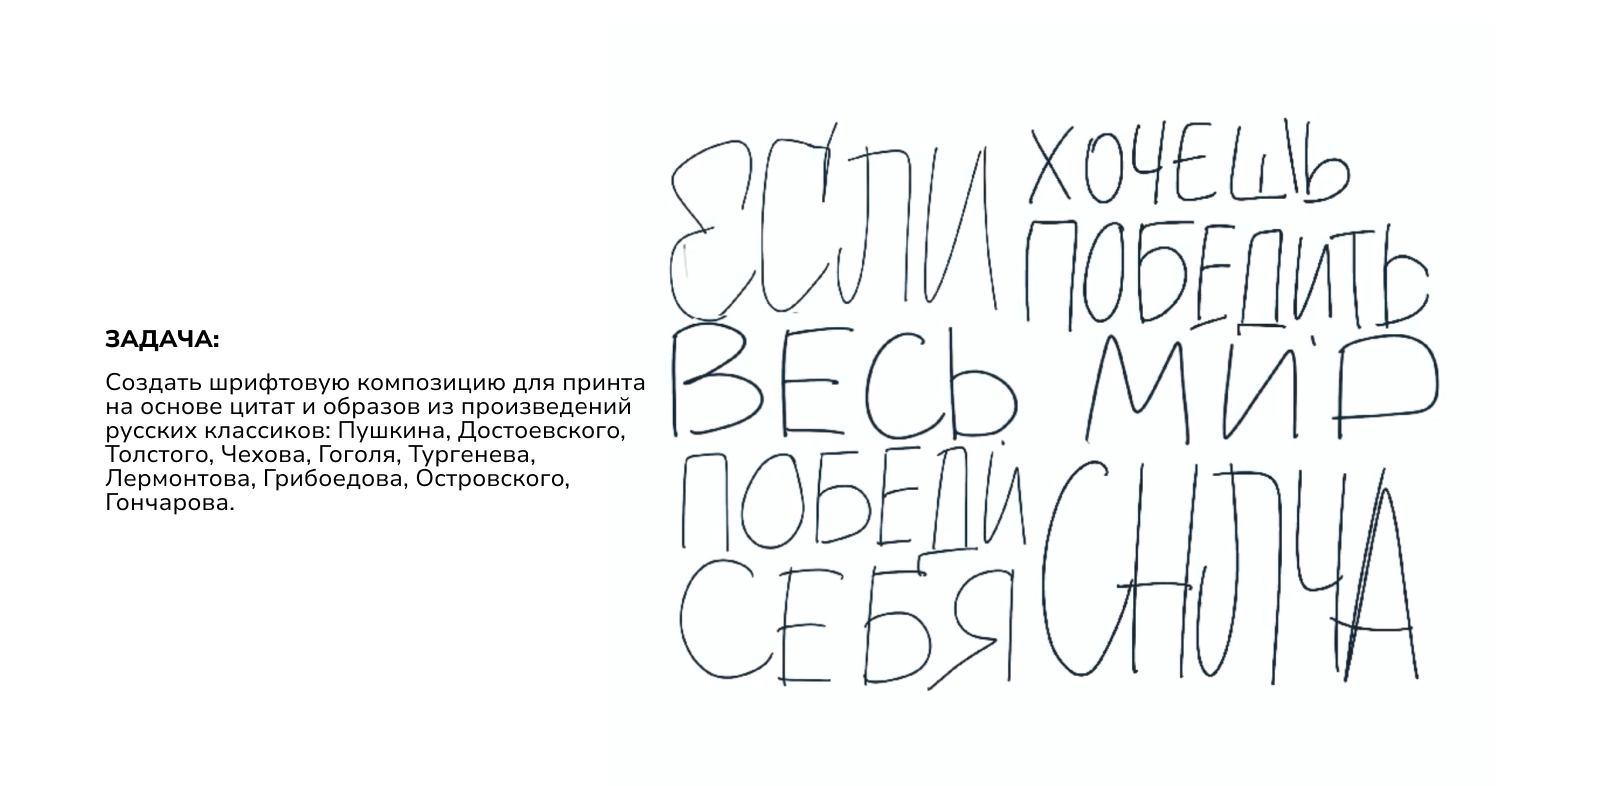 ЗАДАЧА:
Создать шрифтовую композицию для принта
на основе цитат и образов из произведений
русских классиков: Пушкина, Достоевского,
Толстого, Чехова, Гоголя, Тургенева,
Лермонтова, Грибоедова, Островского,
Гончарова.
ЕСЛИ ХОЧЕШЬ
ПОБЕДИТЬ
ВЕСЬ МИР
ПОБЕДИ
СЕБЯ СНЛЧА